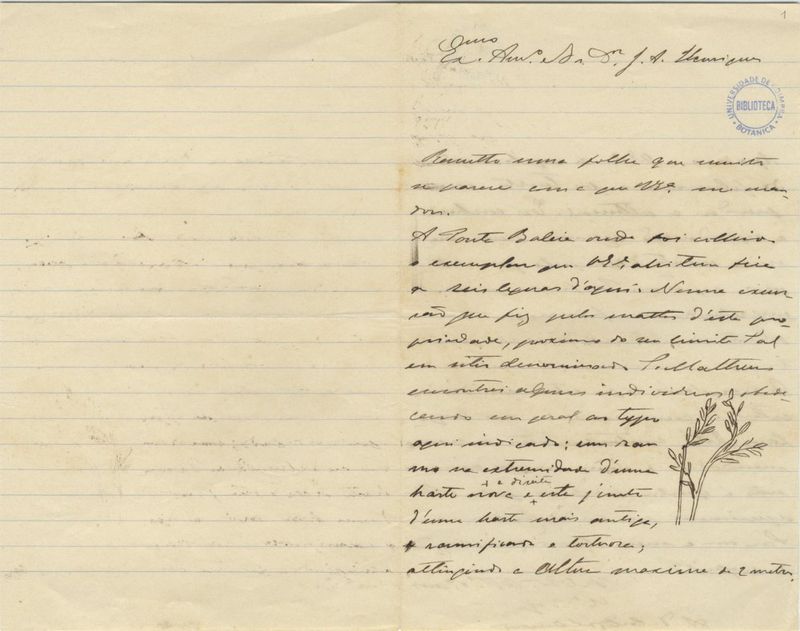 1
Ex.mo Am.o e Sr. Dr. J. A. Henriques
UNIVERSIDADE DE COIMBRA
BIBLIOTECA
BOTANICA
Remetto uma folha que muito
se parece com a que V.Ex.a me man-
dou.
A Ponta Baleia onde foi colhido
o exemplar que V.Ex.a
a seis leguas d'aqui. N'uma excur-
são que fiz pelos mattos d'esta pro-
priedade, proximo do seu limite Sul
em sitio denominado S. Matheus
encontrei alguns individuos obede-
cendo em geral ao typo
aqui indicado; um ra-
mo na extremidade d'uma
e direita
haste nova e este junto
d'uma haste mais antiga,
ramificada e tortuosa,
attingindo a altura maxima de 2 metros.